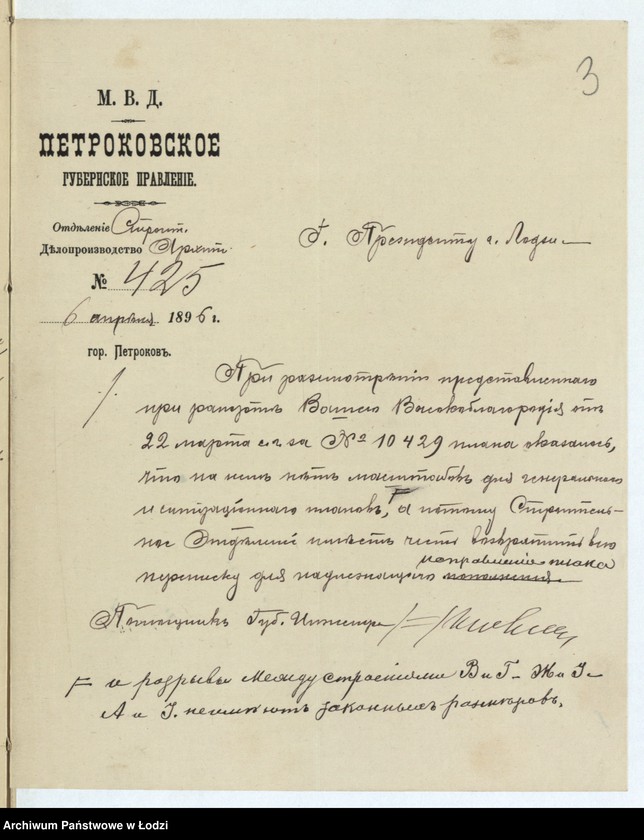 3
М. В. Д.
ПЕТРОКОВСКОЕ
ГУБЕРНСКОЕ ПРАВЛЕНІЕ.
Отдѣленіе Строит.
Дѣлопроизводство Архит.
№ 425
6 апрѣля 1896 г.
гор. Петроковъ.
Г. Президенту г. Лодзи
При разсмотрѣніи представленнаго
при рапортѣ Вашего Высокоблагородія отъ
22 марта с. г. за № 10429 плана оказалось,
что на немъ нѣтъ масштабовъ для генеральнаго
и ситуаціоннаго плановъ, а потому Строитель-
ное Отдѣленіе имѣетъ честь возвратить всю
исправленія плана
переписку для надлежащаго
Помощникъ Губ. Инженера
и разрывы между строеніями В и Г - Ж и І -
А и І. не имѣютъ законныхъ размѣровъ.
Archiwum Państwowe w Łodzi